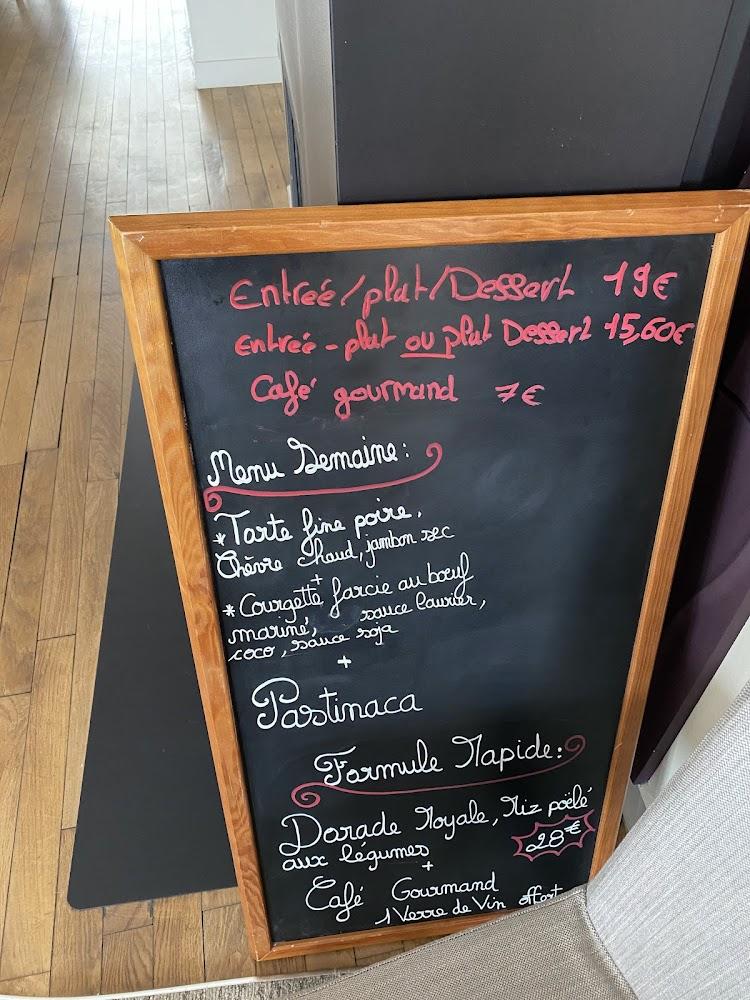 Entrée/plat/Dessert 19€
Entrée - plat ou plat Dessert 15,60€
Café gourmand 7€
Menu Semaine:
*Tarte fine poire,
Chèvre chaud, jambon sec
+
*Courgette farcie au bœuf
mariné, sauce laurier,
coco, sauce soja
+
Pastinaca
Formule Rapide:
Dorade Royale, Riz poêlé
aux légumes 28€
+
Café Gourmand
1 Verre de Vin offert